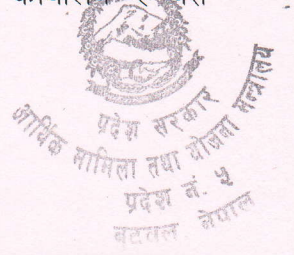 प्रदेश सरकार
आर्थिक मामिला तथा योजना मन्त्रालय
प्रदेश नं. ५
बुटवल नेपाल